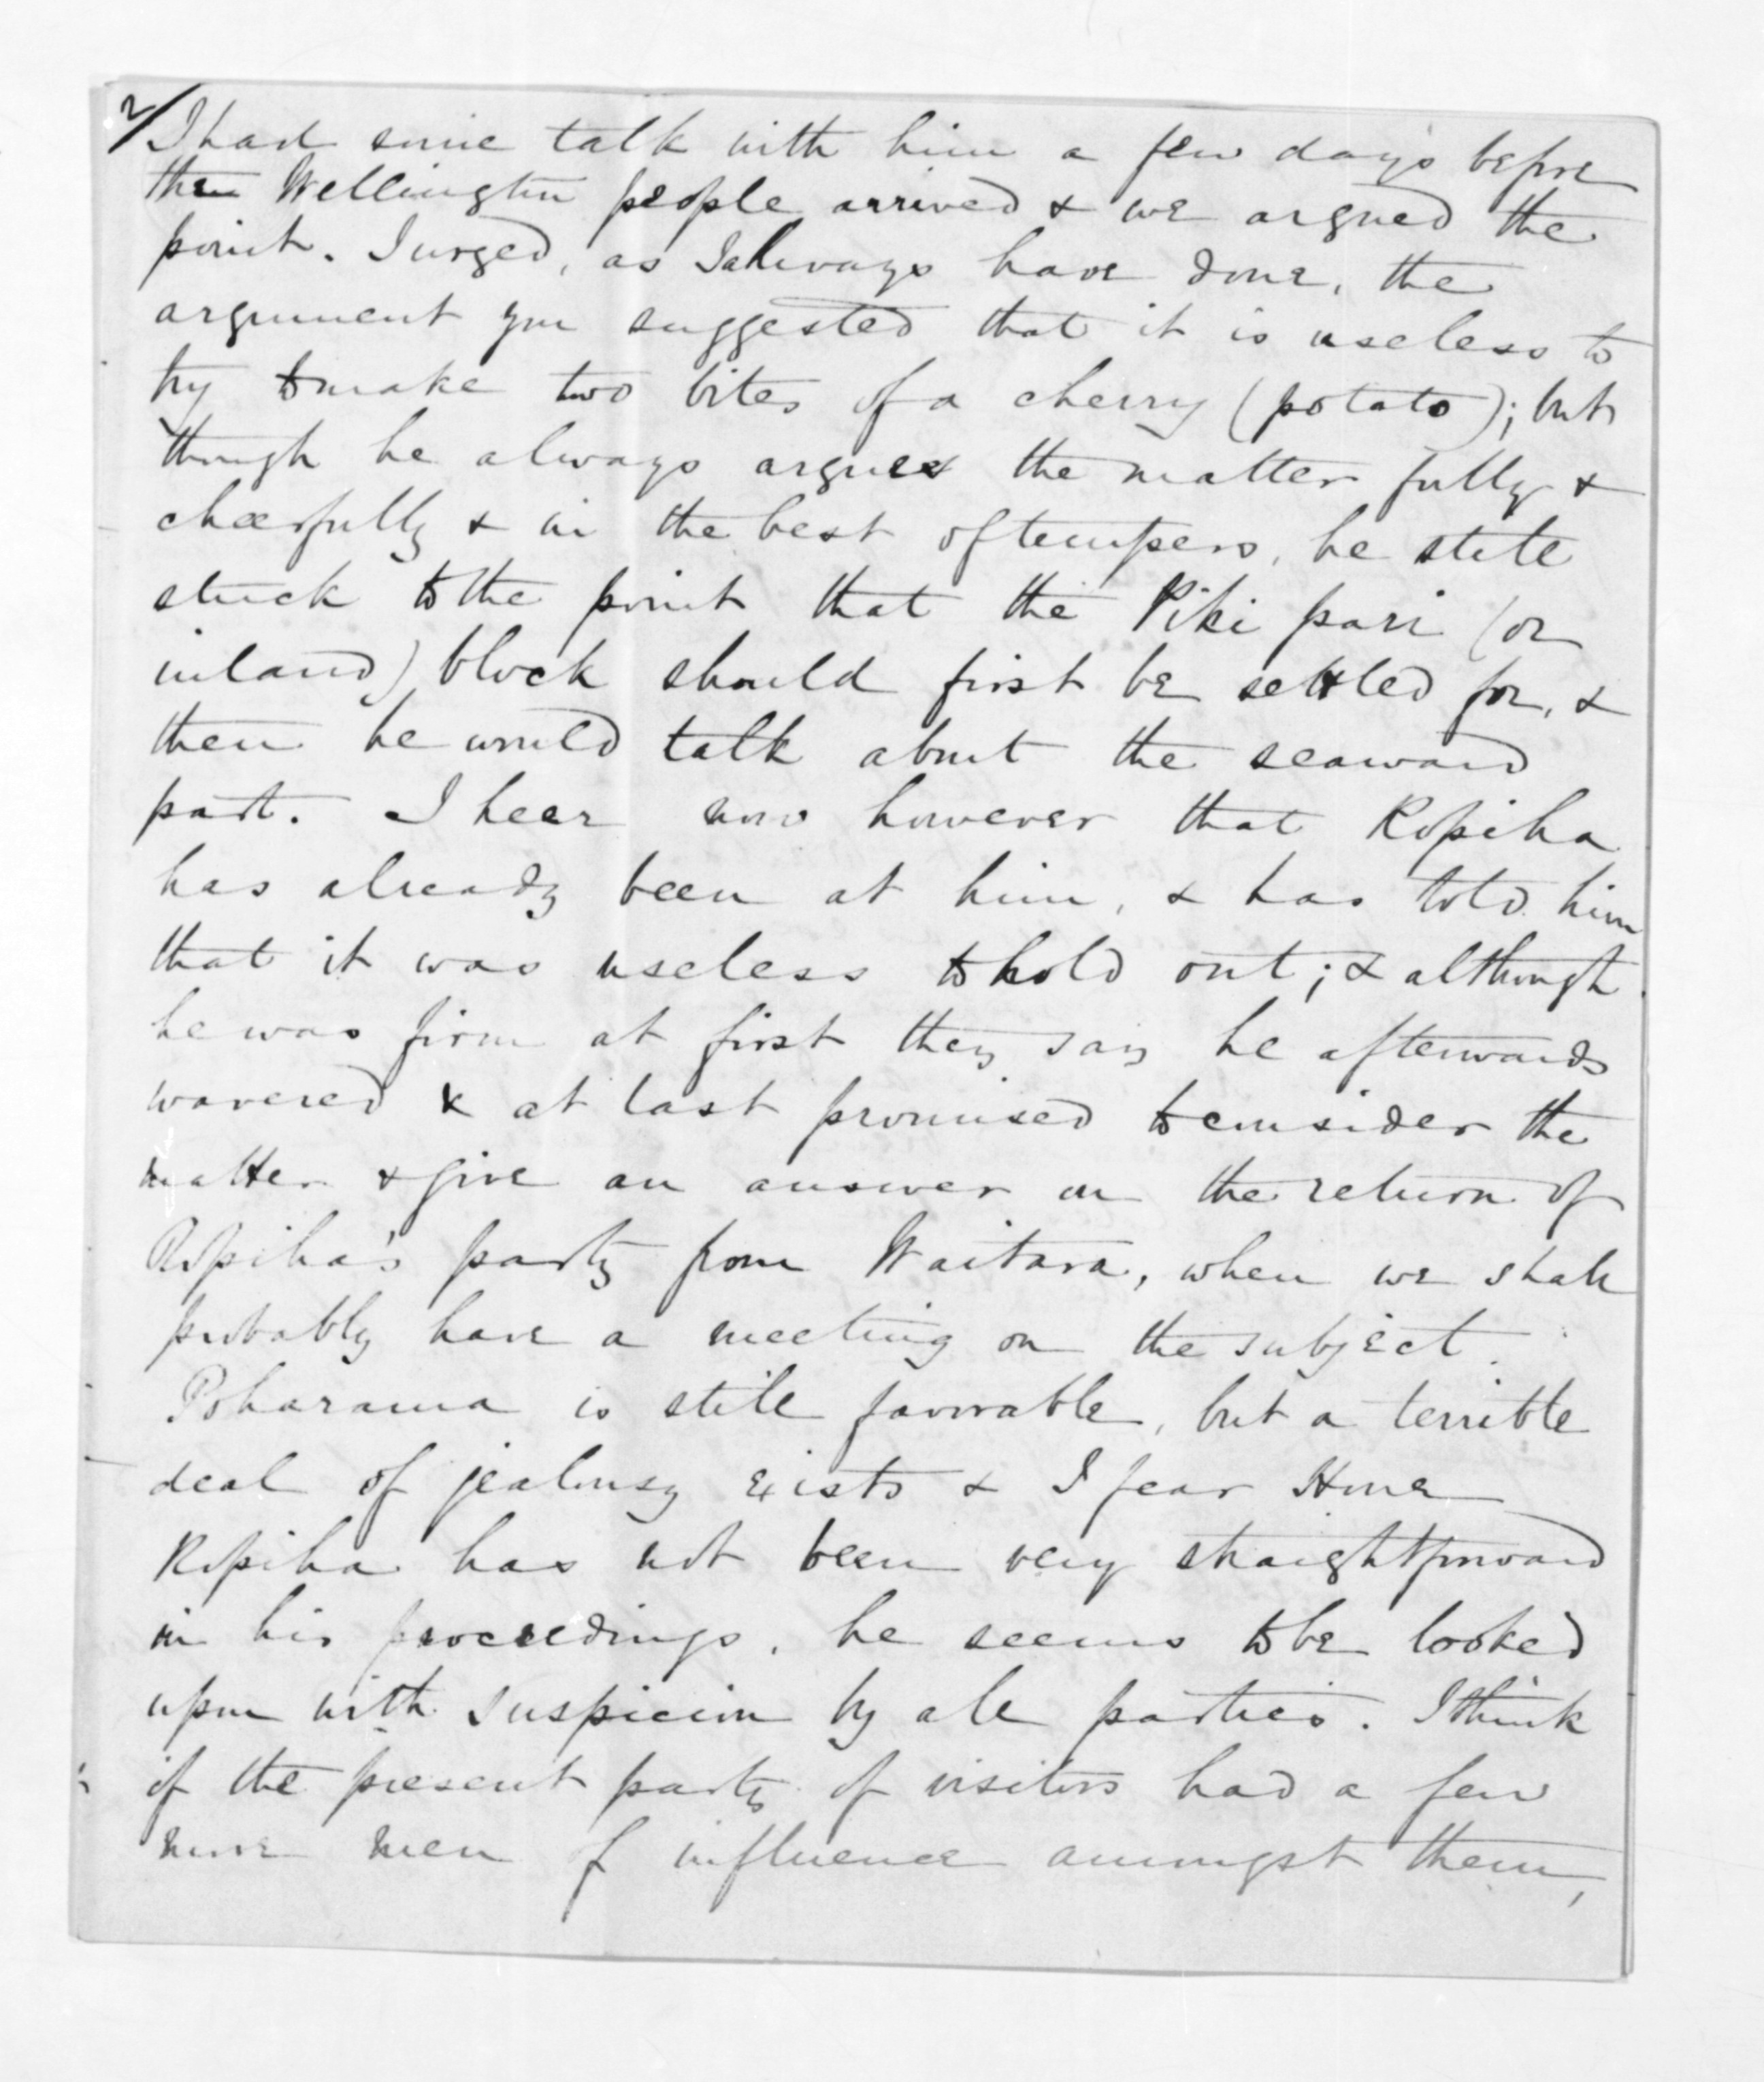 2/ I had some talk with him a few days before
the Wellington people arrived & we argued the
point. I urged, as I always have done, the
argument you suggested that it is useless to
try to make two bites of a cherry (potato); but
though he always argues the matter fully &
cheerfully & in the best of tempers, he still
stuck to the point that the Piki pari (or
inland) block should first be settled for, &
then he would talk about the seaward
part. I hear now however that Ropiha
has already been at him, & has told him
that it was useless to hold out; & although
he was firm at first they say he afterwards
wavered & at last promised to consider the
matter & give an answer on the return of
Ropiha's party from Waitara, when we shall
probably have a meeting on the subject.
Poharama is still favorable, but a terrible
deal of jealousy exists & I fear Hone
Ropiha has not been very straightforward
in his proceedings. he seems to be looked
upon with suspicion by all parties. I think
if the present party of visitors had a few
more men of influence amongst them,